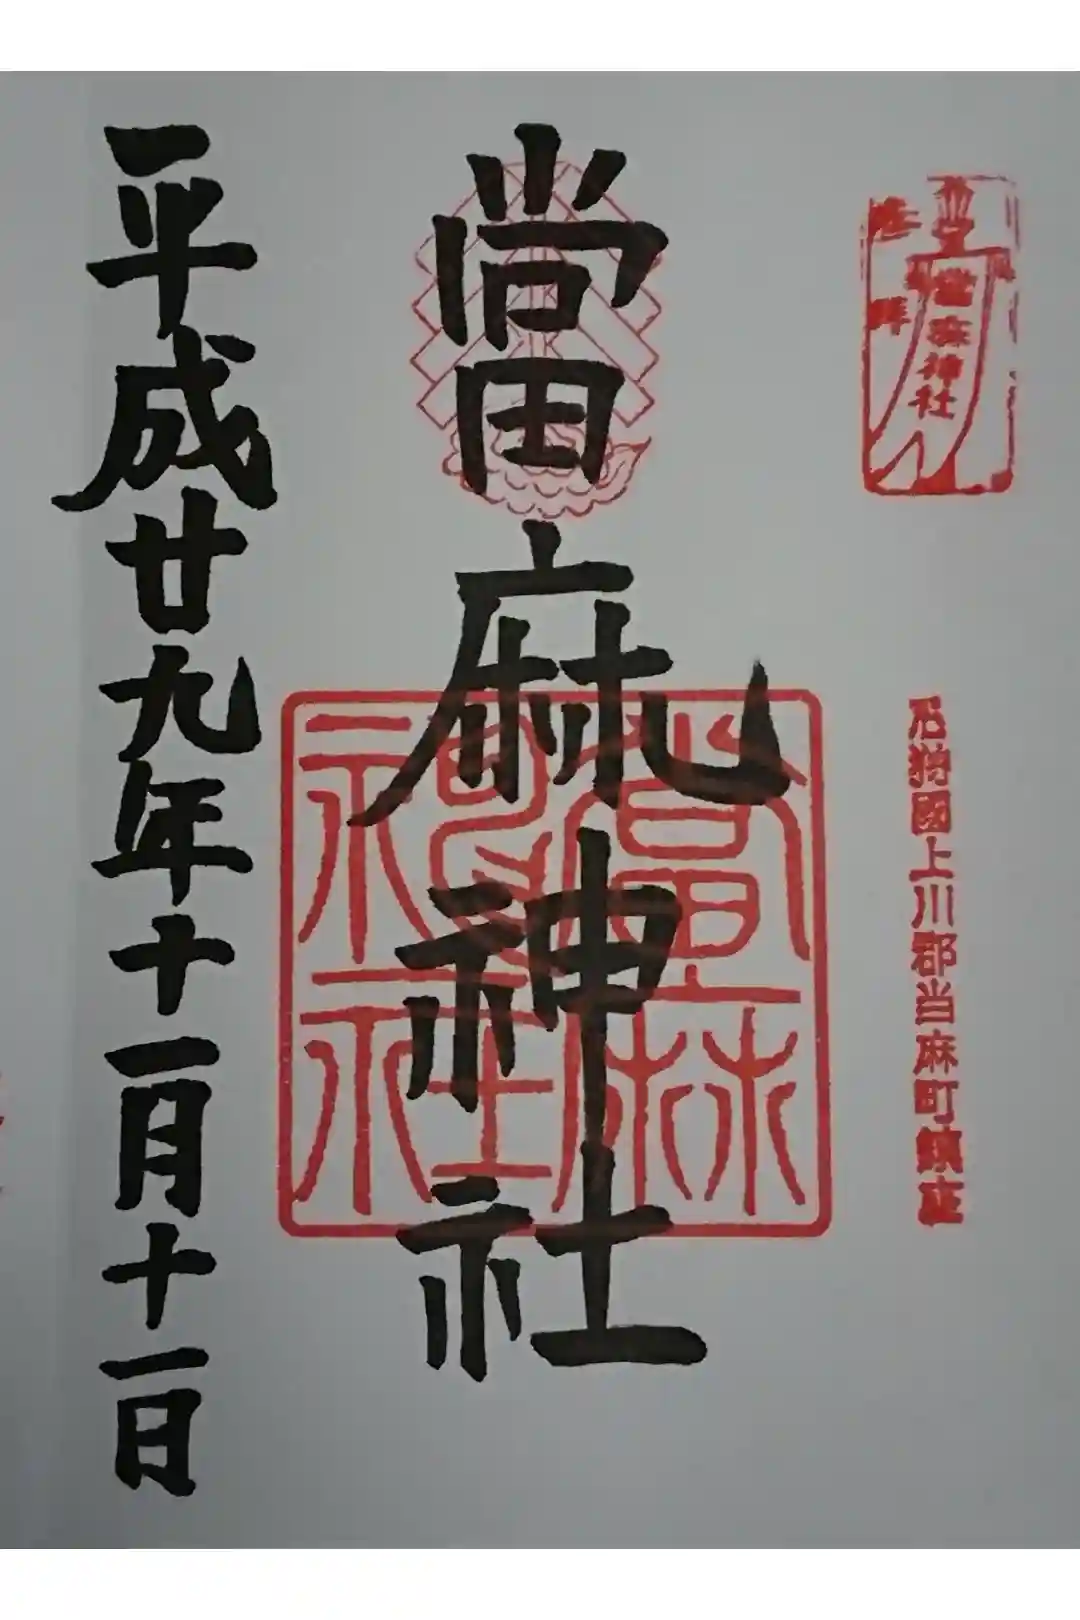 巡拝
當麻神社
石狩國上川郡当麻町鎮座
當麻神社
當麻神社
平成廿九年十一月十一日